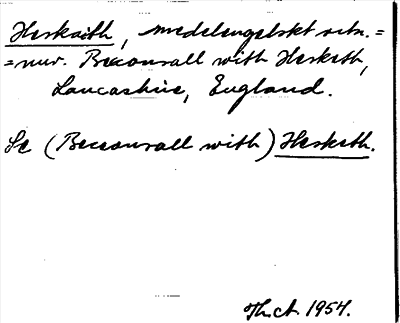 Herskaith, medelengelskt ortn.=
=nur. Becconsall with Hesketh,
Lancashire, England.
Se (Becconsall with) Hesketh.
Th.ct. 1954.